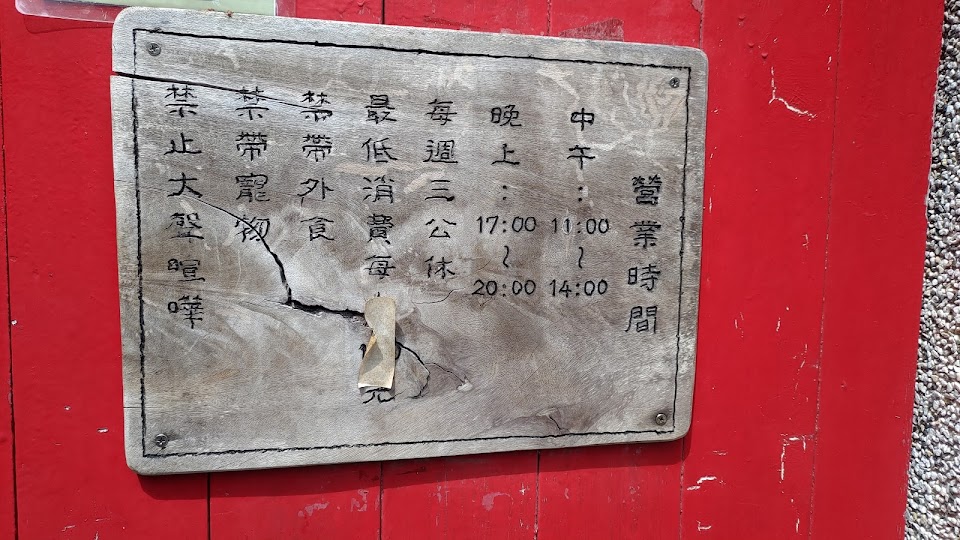 營業時間
中午:11:00~14:00
晚上:17:00~20:00
每週三公休
最低消費每 元
禁帶外食
禁帶寵物
禁止大聲喧嘩